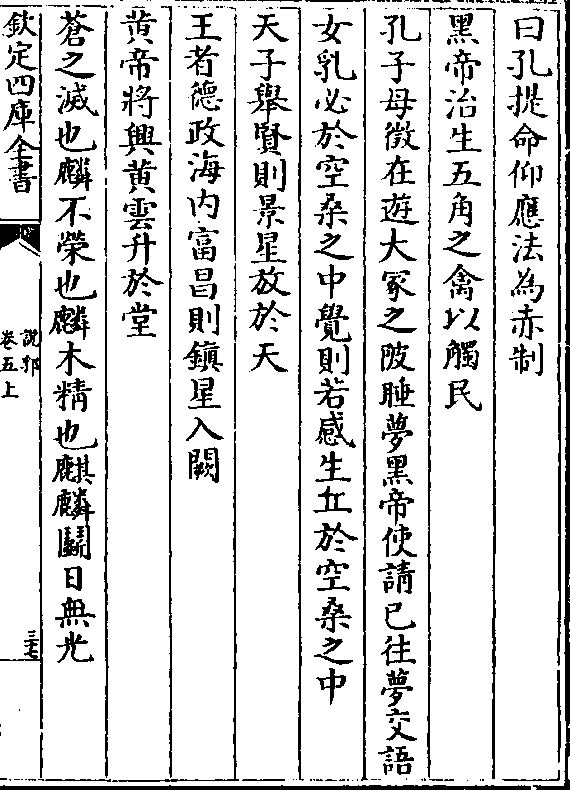 曰孔提命仰應法為赤制
黑帝治生五角之禽以觸民
孔子母徴在遊大冢之陂睡夢黑帝使請已往夢交語
女乳必於空桑之中覺則若感生丘於空桑之中
天子舉賢則景星放於天
王者德政海内富昌則鎮星入闕
黄帝將興黄雲升於堂
蒼之滅也麟不榮也麟木精也麒麟鬭日無光
欽定四庫全書
説郛
卷五上
三七